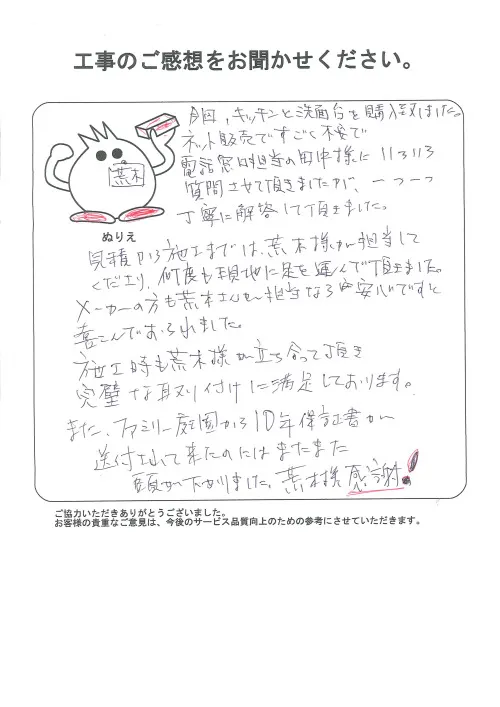 工事のご感想をお聞かせください。
今回、キッチンと洗面台を購入致しました。
ネット販売ですごく不安で
荒木
電話窓口担当の田中様に いろいろ
質問させて頂きましたが、一つ一つ
丁寧に解答して頂きました。
ぬりえ
見積から施工までは、荒木様が担当して
くださり、何度も現地に足を運んで頂きました。
メーカーの方も荒木さんが担当なら安心ですと
喜こんでおられました。
施工時も荒木様が立ち合って頂き
完璧な取り付けに満足しております。
また、ファミリー庭園から10年保証書が
送付されて来たのにはまたまた
頭が下がりました。荒木様 感謝!
ご協力いただきありがとうございました。
お客様の貴重なご意見は、今後のサービス品質向上のための参考にさせていただきます。